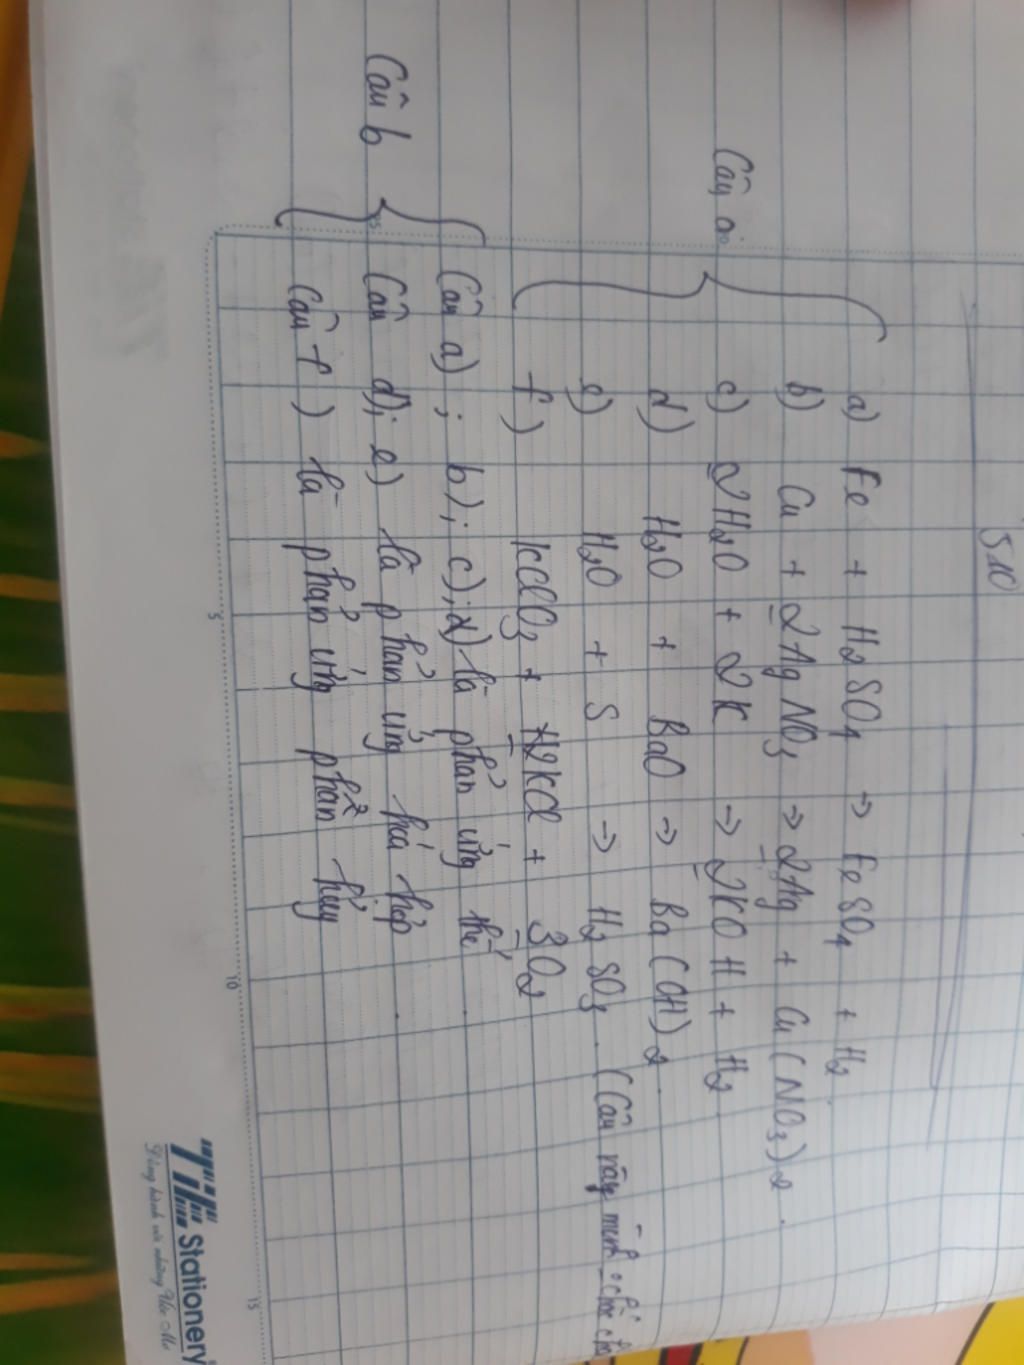 5.10
a) Fe + H2SO4 → FeSO4 + H2
b) Cu + 2AgNO3 → 2Ag + Cu(NO3)2.
Câu a:
c) 2H2O + 2K → 2KOH + H2
d) H2O + BaO → Ba(OH)2
e) H2O + S → H2SO3. (Câu này mình
f) KClO3 + 2KCl + 3O2
Câu a); b); c); d) là phản ứng thế.
Câu b
Câu d); e) là phản ứng hoá hợp.
Câu f) là phản ứng phân hủy
5
10
15
TP Stationery